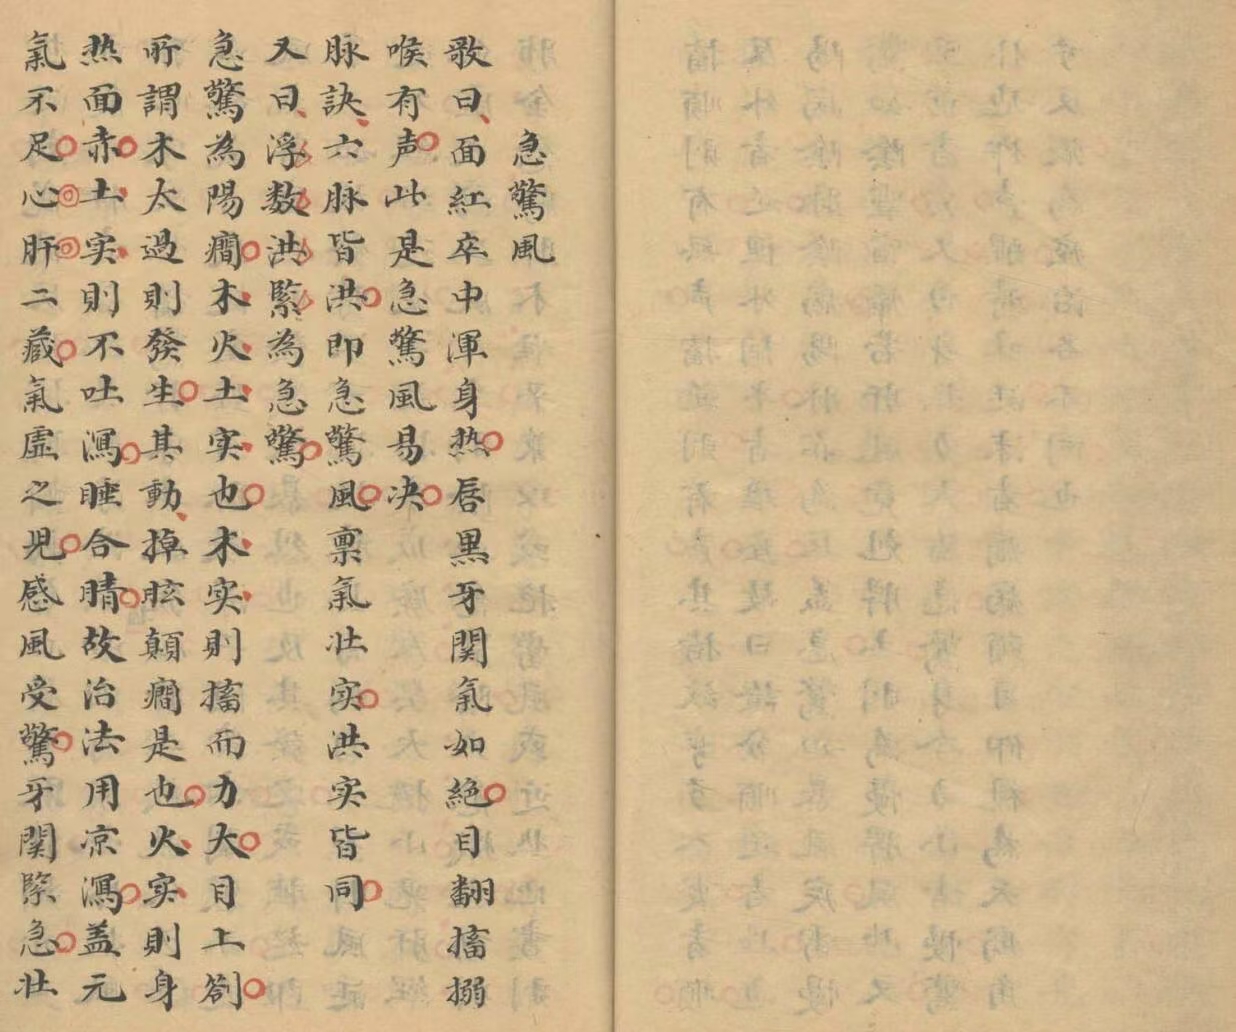 急驚風
歌曰面紅卒中渾身热唇黑牙関氣如絕目翻搐搦
喉有声此是急驚風易决
脉訣六脉皆洪即急驚風禀氣壮实洪实皆同
又曰浮数洪緊為急驚
急驚為陽癎木火土实也木实則搐而力大目上劄
所謂木太過則發生其動掉眩顛癎是也火实則身
热面赤土实則不吐瀉睡合睛故治法用凉瀉盖元
氣不足心肝二藏氣虛之児感風受驚牙関緊急壮